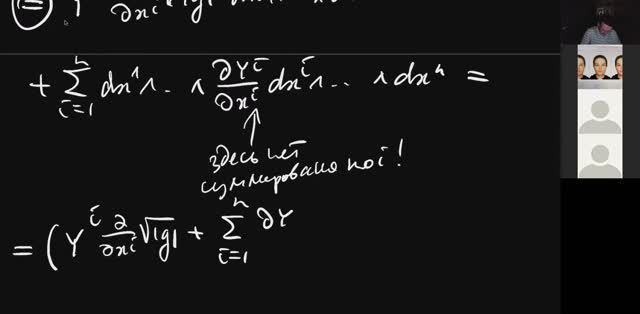 + ∑_{i=1}^{n} dx¹∧.. ∧ ∂Yⁱ/∂xⁱ dxⁱ∧.. ∧dxⁿ =
здесь нет
суммирования по i!
= (Yⁱ ∂/∂xⁱ √|g| + ∑_{i=1}^{n} ∂Y